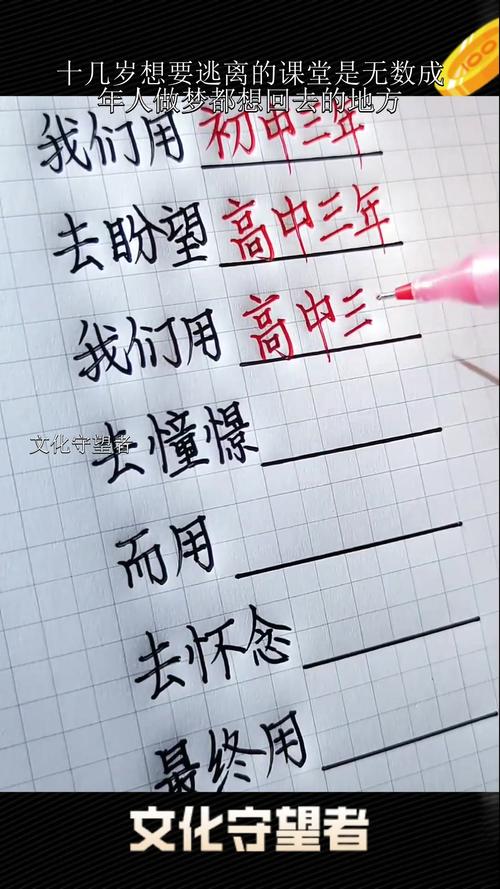 十几岁想要逃离的课堂是无数成
年人做梦都想回去的地方
我们用 初中三年
去盼望 高中三年
我们用 高中三
文化守望者
去憧憬
而用
去怀念
最终用
文化守望者